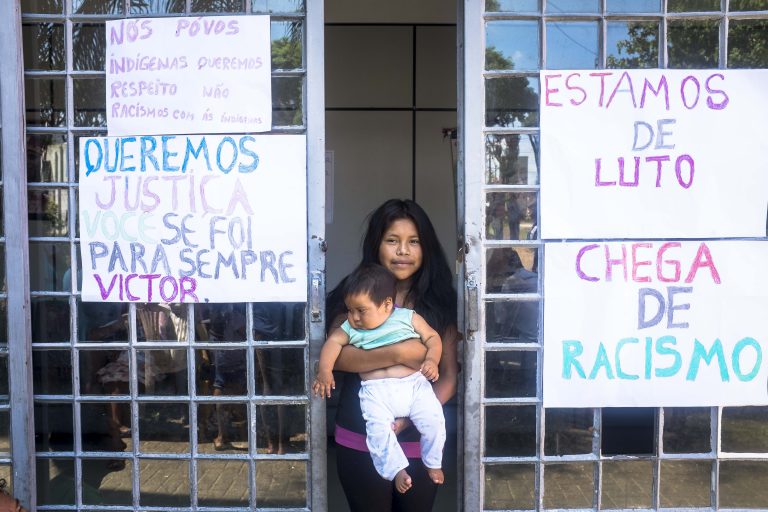 NÓS PÓVOS
INDÍGENAS QUEREMOS
RESPEITO NÃO
RACISMOS COM ÁS INDÍGENAS
QUEREMOS
JUSTIÇA
VOCE SE FOI
PARA SEMPRE
VICTOR.
ESTAMOS
DE
LUTO
CHEGA
DE
RACISMO